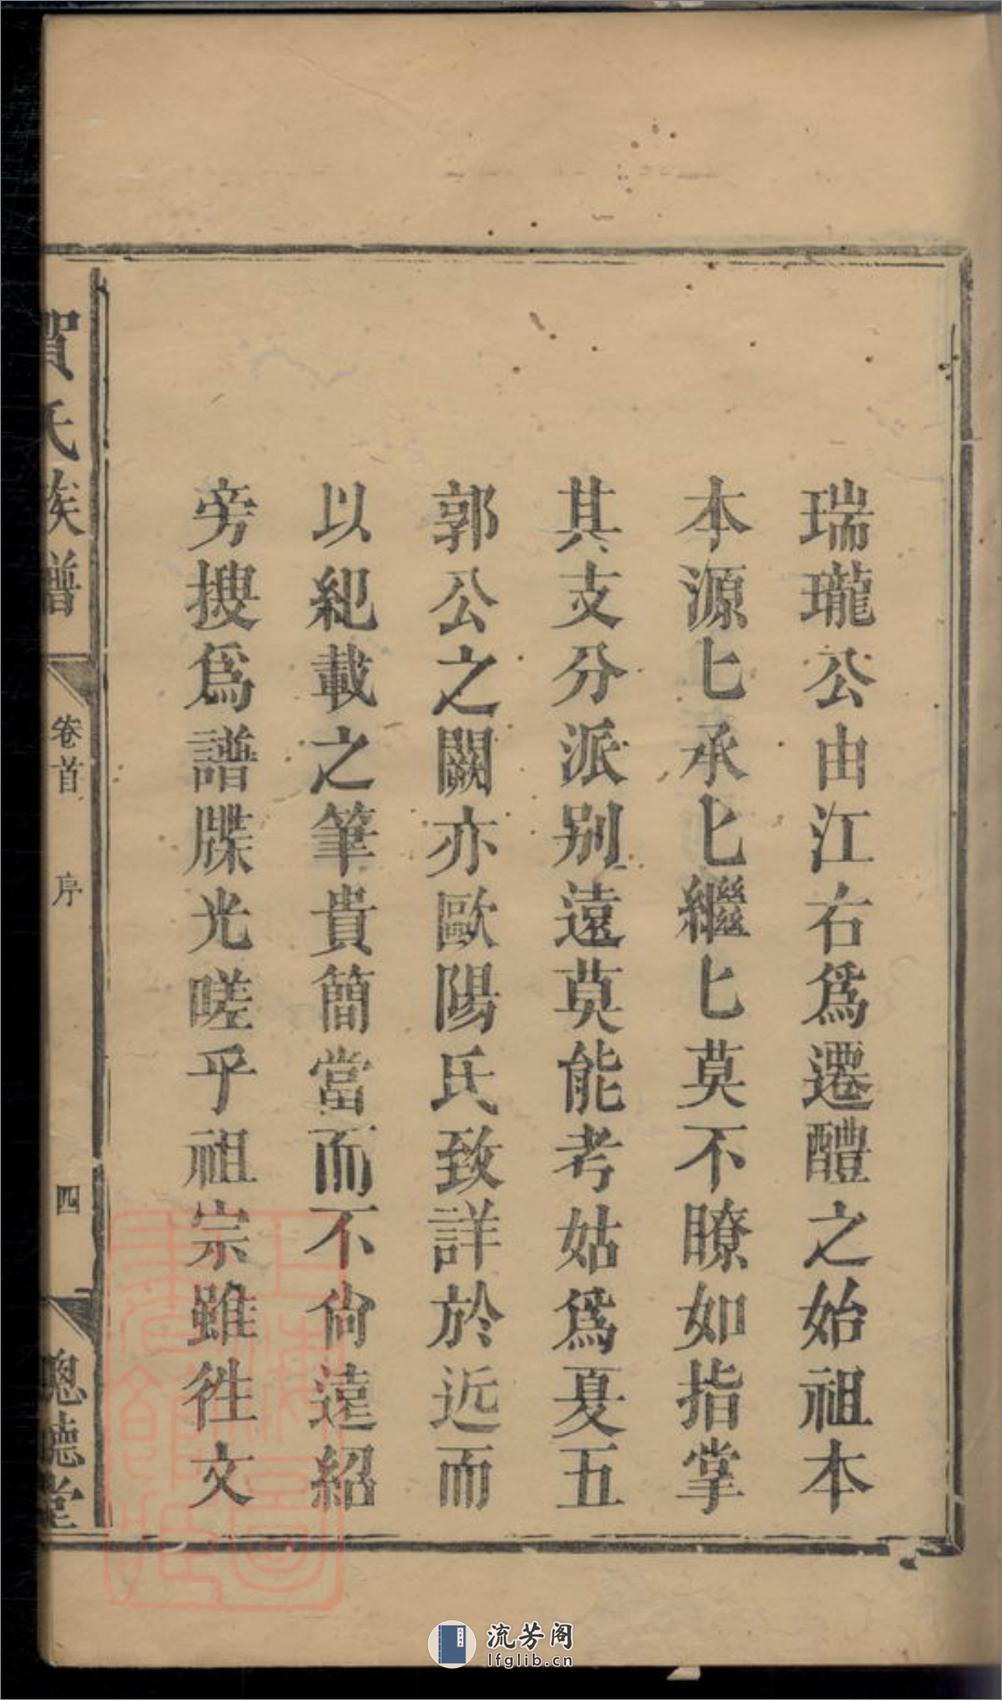 瑞瓏公由江右爲遷醴之始祖本
本源匕承匕繼匕莫不瞭如指掌
其支分派别遠莫能考姑爲夏五
郭公之闕亦歐陽氏致詳於近而
以紀載之筆貴簡當而不尙遠紹
旁搜爲譜牒光嗟乎祖宗雖往文
賀氏族譜
卷首
序
四
聰聽堂
流芳阁
lfglib.cn